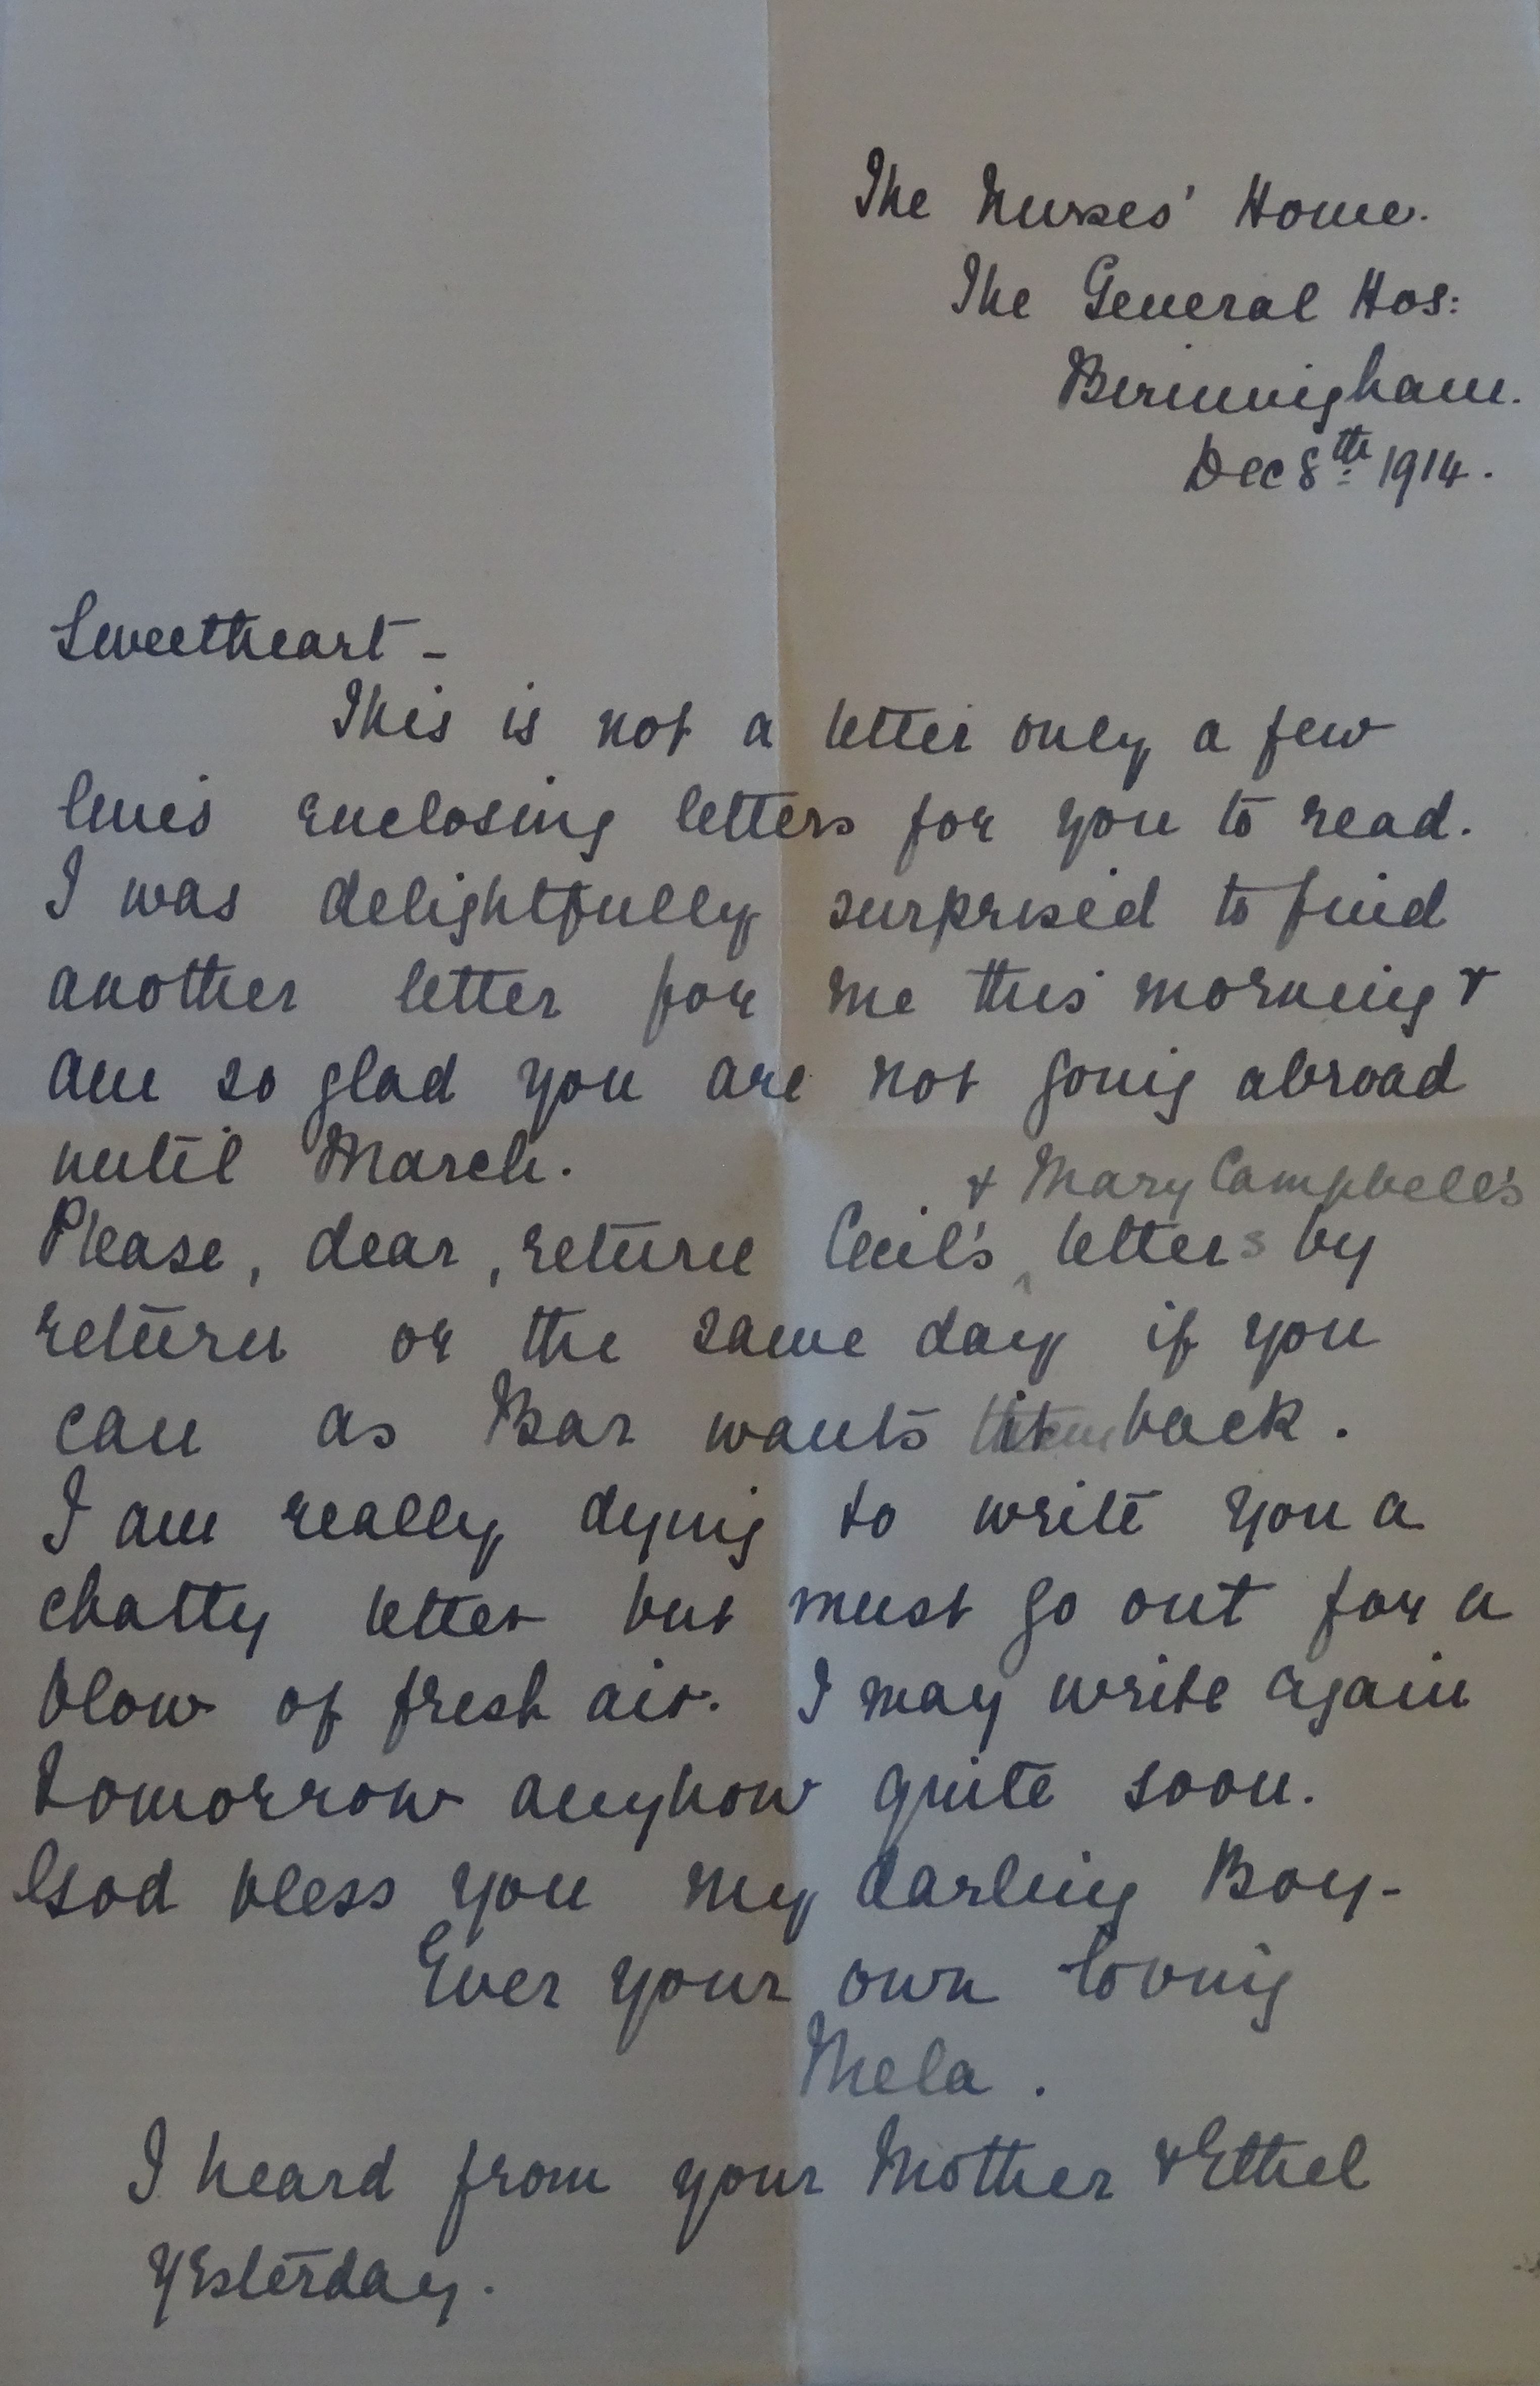 The Nurses' Home.
The General Hos:
Birmingham.
Dec 8th 1914.
Sweetheart -
This is not a letter only a few
lines enclosing letters for you to read.
I was delightfully surprised to find
another letter for me this morning &
am so glad you are not going abroad
until March.
& Mary Campbell's
Please, dear, return Cecil's ‸ letters by
return or the same day if you
can as Bar wants them back.
I am really dying to write you a
chatty letter but must go out for a
blow of fresh air. I may write again
tomorrow anyhow quite soon.
God bless you my darling Boy-
Ever your own loving
Mela.
I heard from your Mother & Ethel
yesterday.